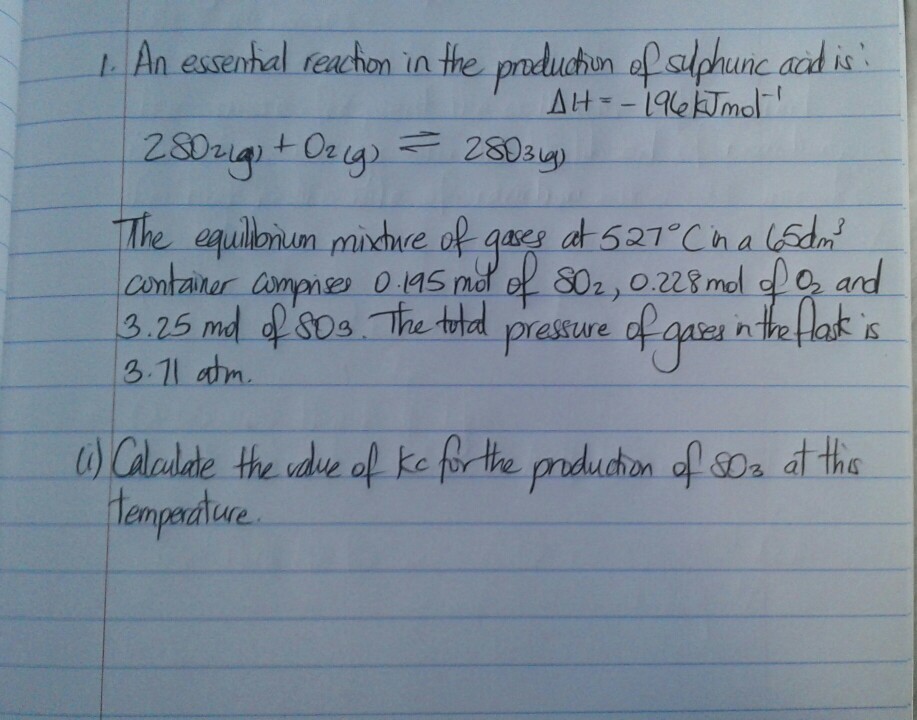 1. An essential reaction in the production of sulphuric acid is:
ΔH = -196 kJmol⁻¹
2SO₂(g) + O₂(g) ⇌ 2SO₃(g)
The equilibrium mixture of gases at 527°C in a 65dm³
container comprises 0.195 mol of SO₂, 0.228 mol of O₂ and
3.25 mol of SO₃. The total pressure of gases in the flask is
3.71 atm.
(i) Calculate the value of Kc for the production of SO₃ at this
temperature.